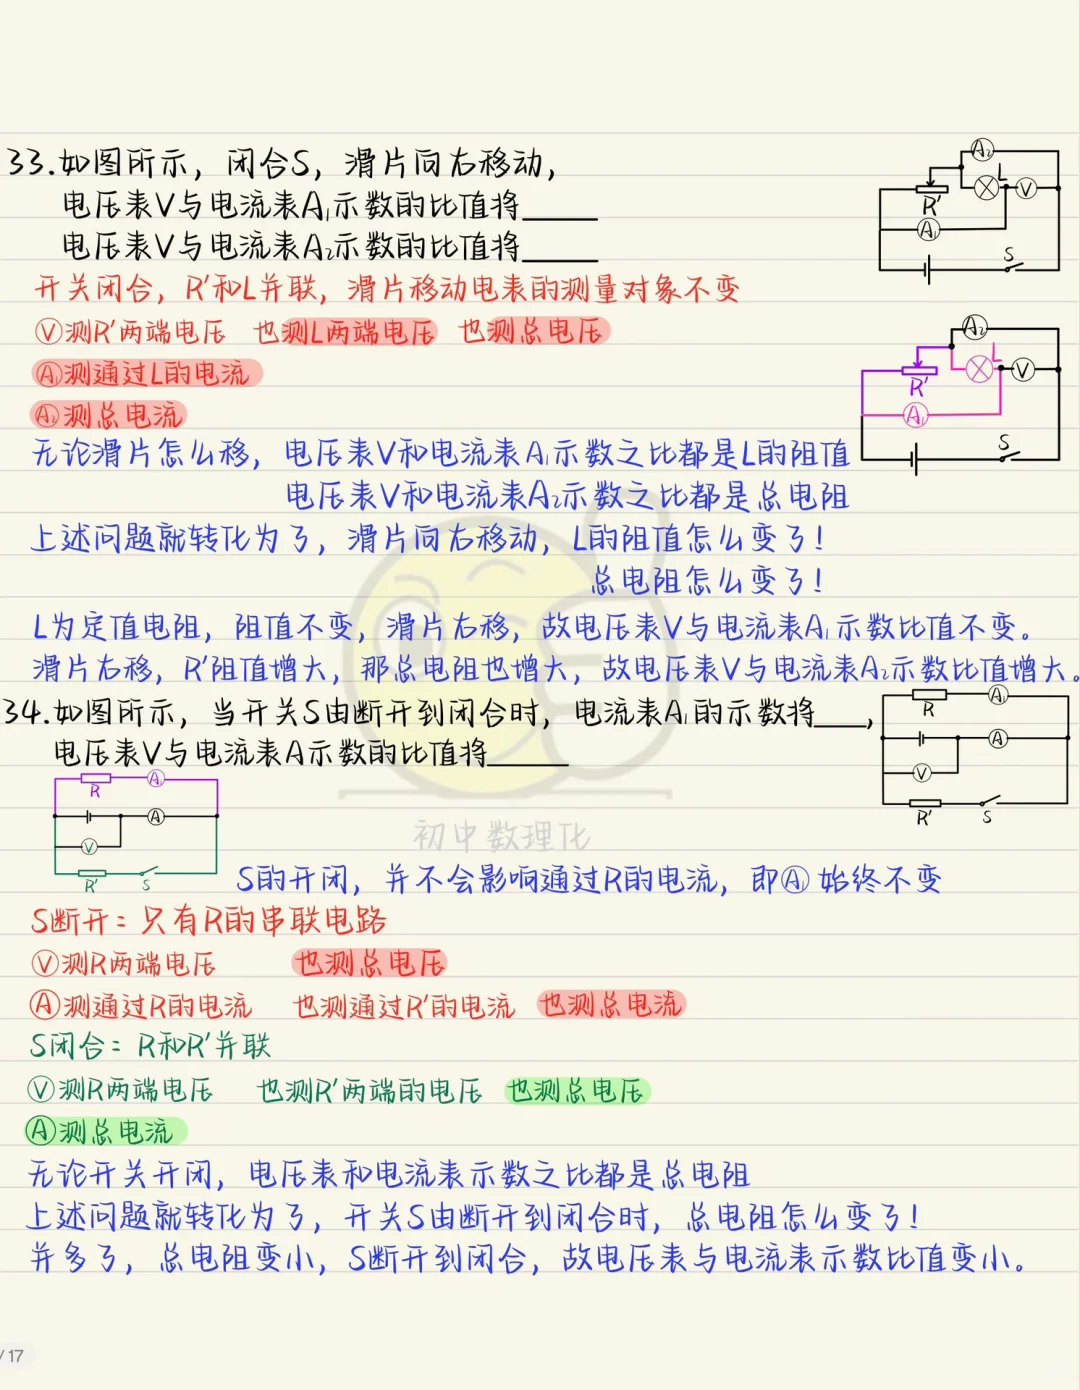 33.如图所示，闭合S，滑片向右移动，
电压表V与电流表A₁示数的比值将_____
电压表V与电流表A₂示数的比值将_____
A₂
L
V
R'
A₁
S
开关闭合，R'和L并联，滑片移动电表的测量对象不变
Ⓥ测R'两端电压 也测L两端电压 也测总电压
Ⓐ₁测通过L的电流
Ⓐ₂测总电流
A₂
L
V
R'
A₁
S
无论滑片怎么移，电压表V和电流表A₁示数之比都是L的阻值
电压表V和电流表A₂示数之比都是总电阻
上述问题就转化为了，滑片向右移动，L的阻值怎么变了！
总电阻怎么变了！
L为定值电阻，阻值不变，滑片右移，故电压表V与电流表A₁示数比值不变。
滑片右移，R'阻值增大，那总电阻也增大，故电压表V与电流表A₂示数比值增大。
34.如图所示，当开关S由断开到闭合时，电流表A₁的示数将___，
电压表V与电流表A示数的比值将_____
R
A₁
A
V
R'
S
R
A₁
A
V
R'
S
初中数理化
S的开闭，并不会影响通过R的电流，即Ⓐ₁始终不变
S断开：只有R的串联电路
Ⓥ测R两端电压 也测总电压
Ⓐ测通过R的电流 也测通过R'的电流 也测总电流
S闭合：R和R'并联
Ⓥ测R两端电压 也测R'两端的电压 也测总电压
Ⓐ测总电流
无论开关开闭，电压表和电流表示数之比都是总电阻
上述问题就转化为了，开关S由断开到闭合时，总电阻怎么变了！
并多了，总电阻变小，S断开到闭合，故电压表与电流表示数比值变小。
/17